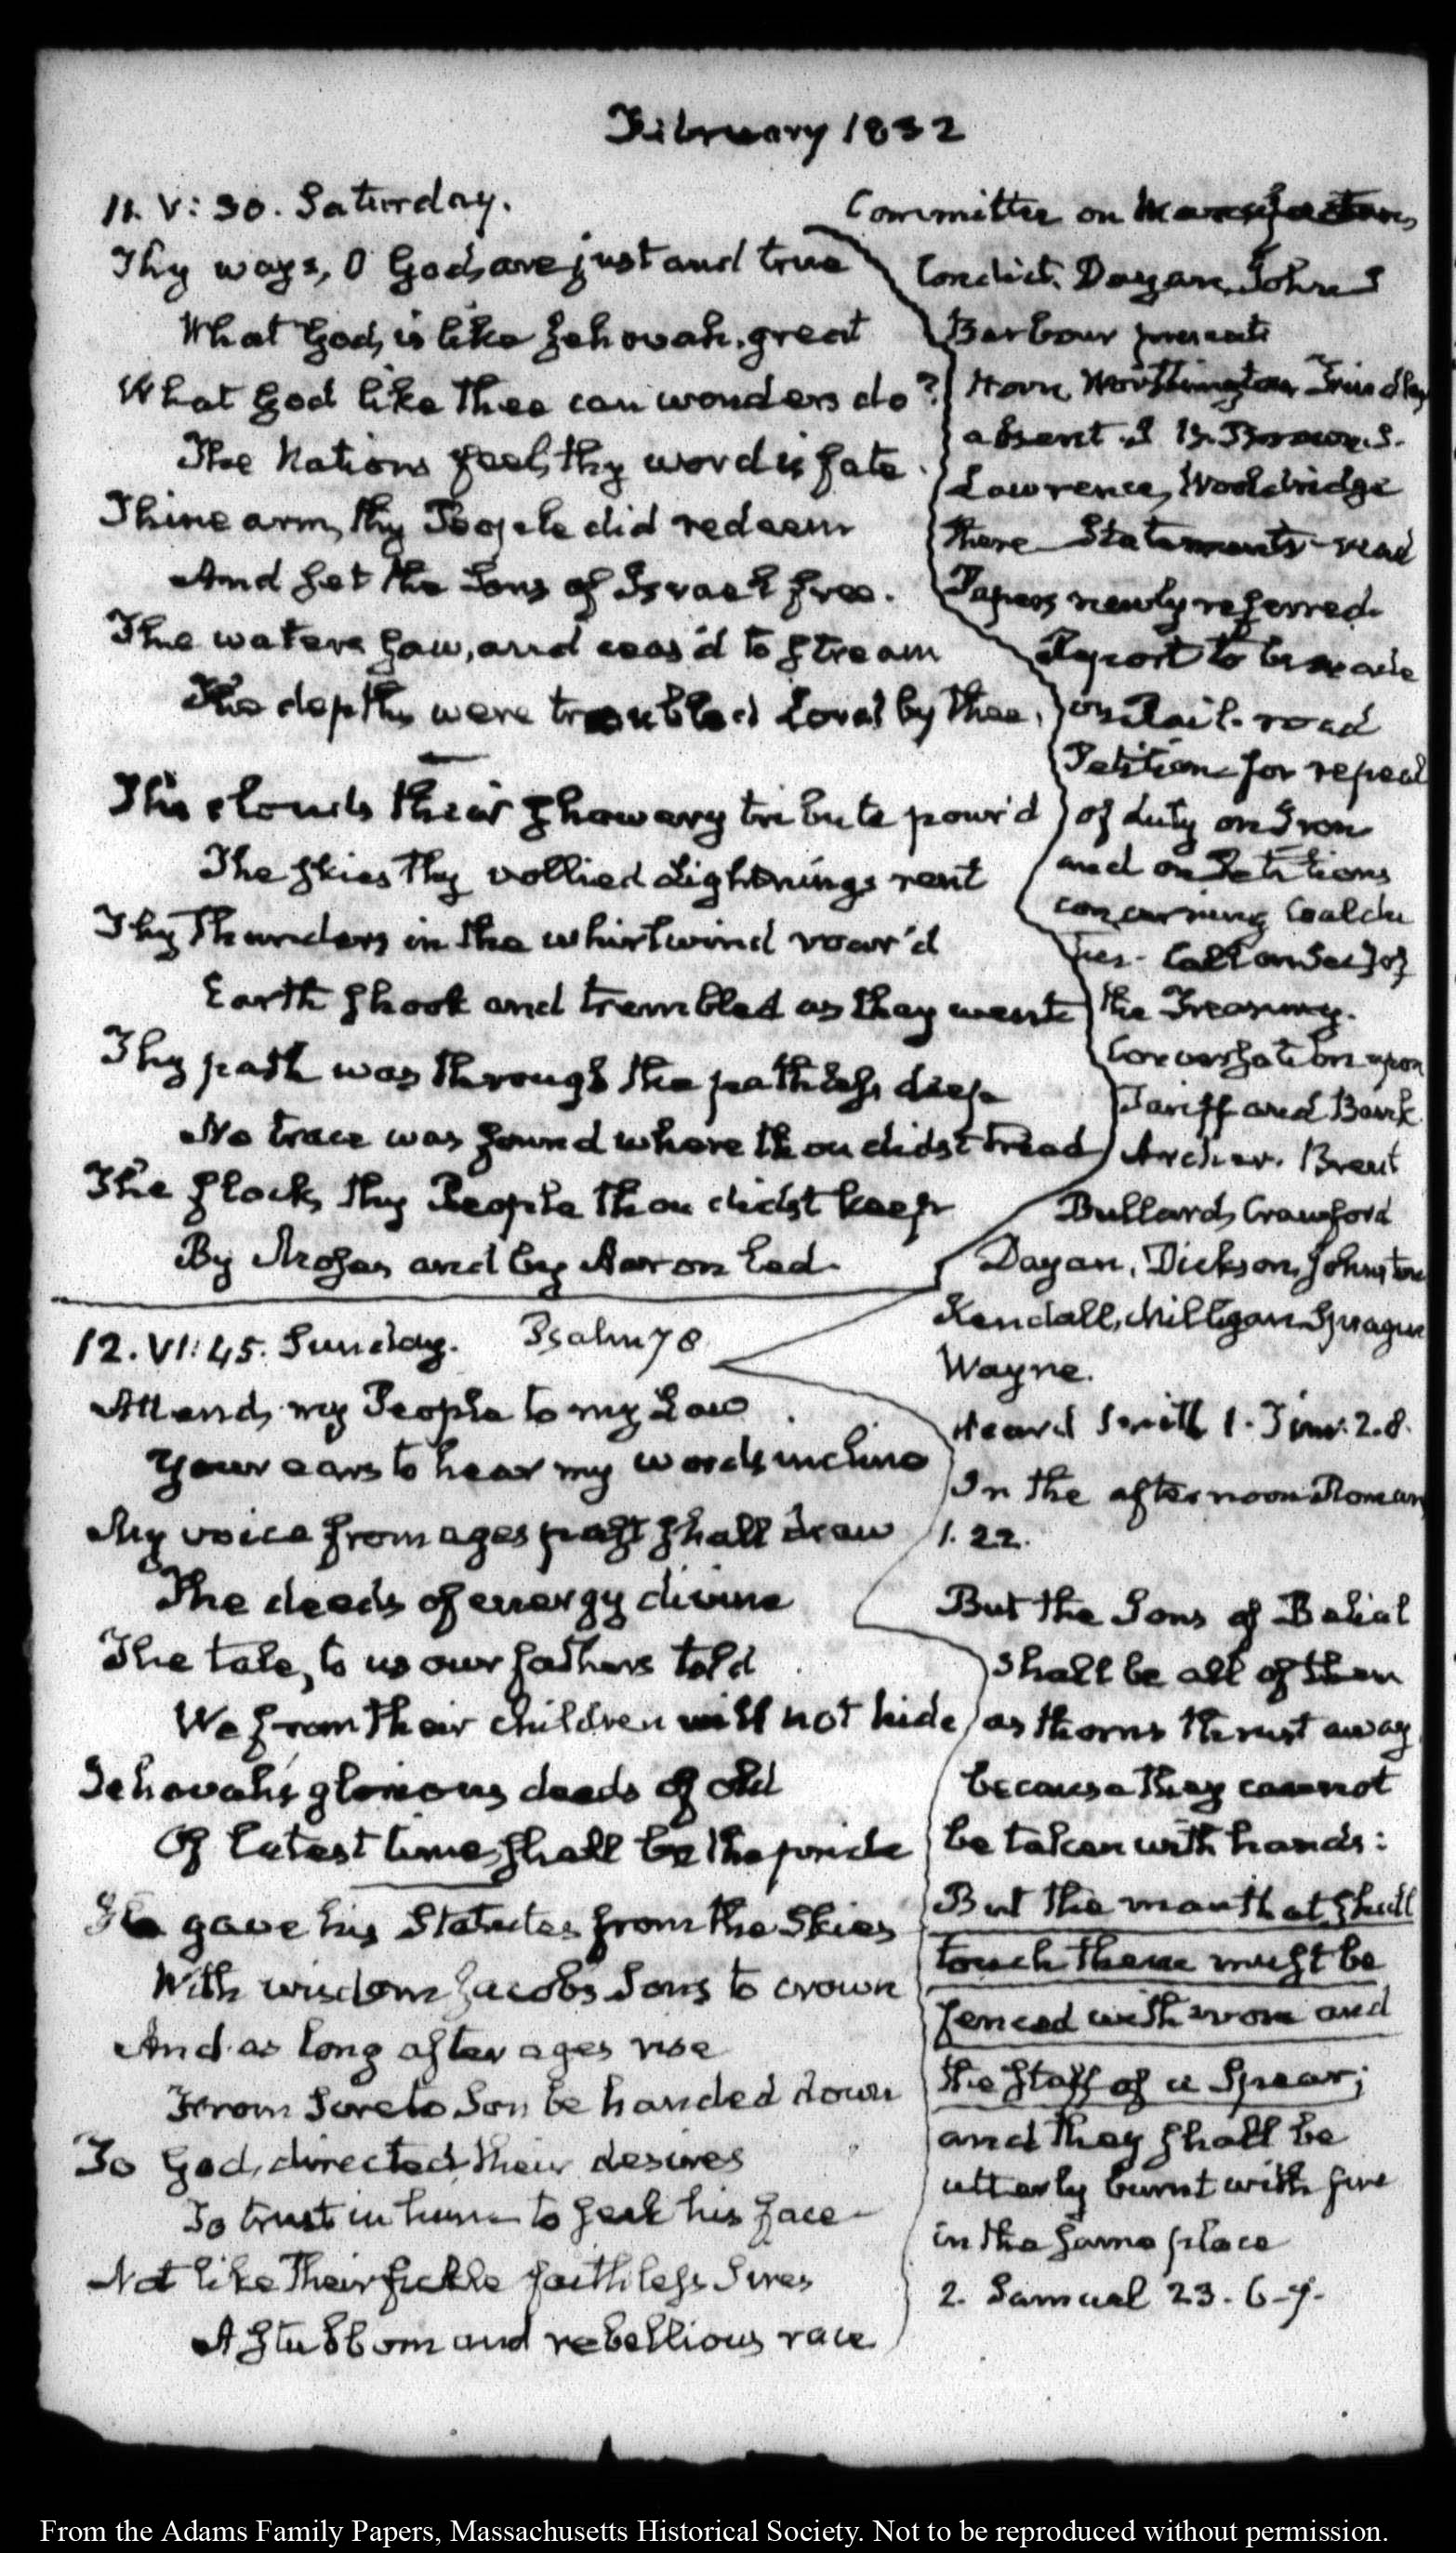 February 1832
11. V: 30. Saturday.
Thy ways, O God, are just and true
What God, is like Jehovah, great
What God like thee can wonders do?
The Nations feel, thy word is fate.
Thine arm, thy People did redeem
And set the Sons of Israel free.
The waters saw, and ceas'd to stream
The depths were troubled Lord by thee,
The clouds their showery tribute pour'd
The skies thy vollied Lightnings rent
Thy Thunders in the whirlwind roar'd
Earth shook and trembled as they went
Thy path was through the pathless deep
No trace was found where thou didst tread
The flock, thy People thou didst keep
By Moses and by Aaron led.
12. VI: 45. Sunday. Psalm 78
Attend, my People to my Law
Your ears to hear my words incline
My voice from ages past shall draw
The deeds of energy divine
The tale, to us our fathers told
We from their children will not hide
Jehovah's glorious deeds of old
Of latest time, shall be the pride
He gave his Statutes from the Skies
With wisdom Jacobs Sons to crown
And as long after ages rise
From Sire to Son be handed down
To God, directed their desires
To trust in him to seek his face
Not like their fickle faithless Sires
A stubborn and rebellious race
Committee on Manufactures
Condict. Dayan, John S
Barbour present
Horn, Worthington Findlay
absent. J. B. Brown, S.
Lawrence, Wooldridge
there Statements read
Papers newly referred.
Report to be made
on Rail-road
Petition for repeal
of duty on Iron
and on Petitions
concerning Coal du
ties. Call on Secy of
the Treasury.
Conversation upon
Tariff and Bank.
Archer. Brent
Bullard, Crawford
Dayan, Dickson, Johnston
Kendall, Milligan Sprague
Wayne.
Heard Smith 1. Tim: 2.8.
In the afternoon Romans
1. 22.
But the Sons of Belial
shall be all of them
as thorns thrust away
because they cannot
be taken with hands:
But the man that shall
touch them must be
fenced with iron and
the staff of a Spear;
and they shall be
utterly burnt with fire
in the same place
2. Samuel 23. 6-7.
From the Adams Family Papers, Massachusetts Historical Society. Not to be reproduced without permission.